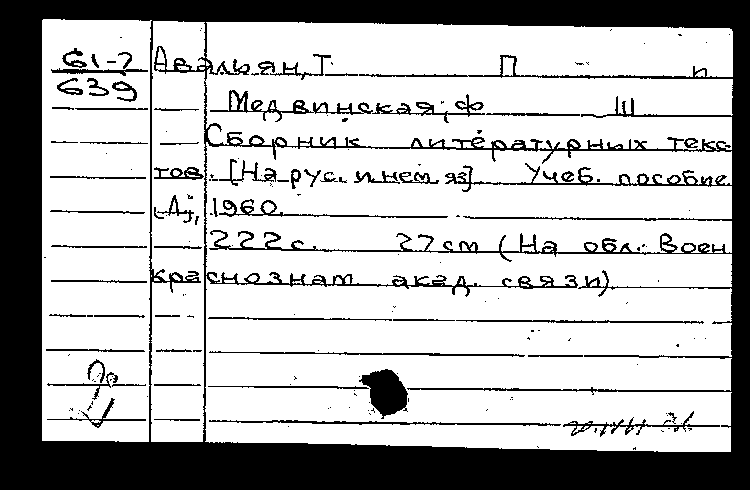 61-7 Авальян, Т П п
639
Медвинская, Ф Ш
Сборник литературных текс
тов. [На рус. и нем яз] Учеб. пособие
Л, 1960.
222 с. 27 см (На обл.: Воен
краснознам акад. связи)